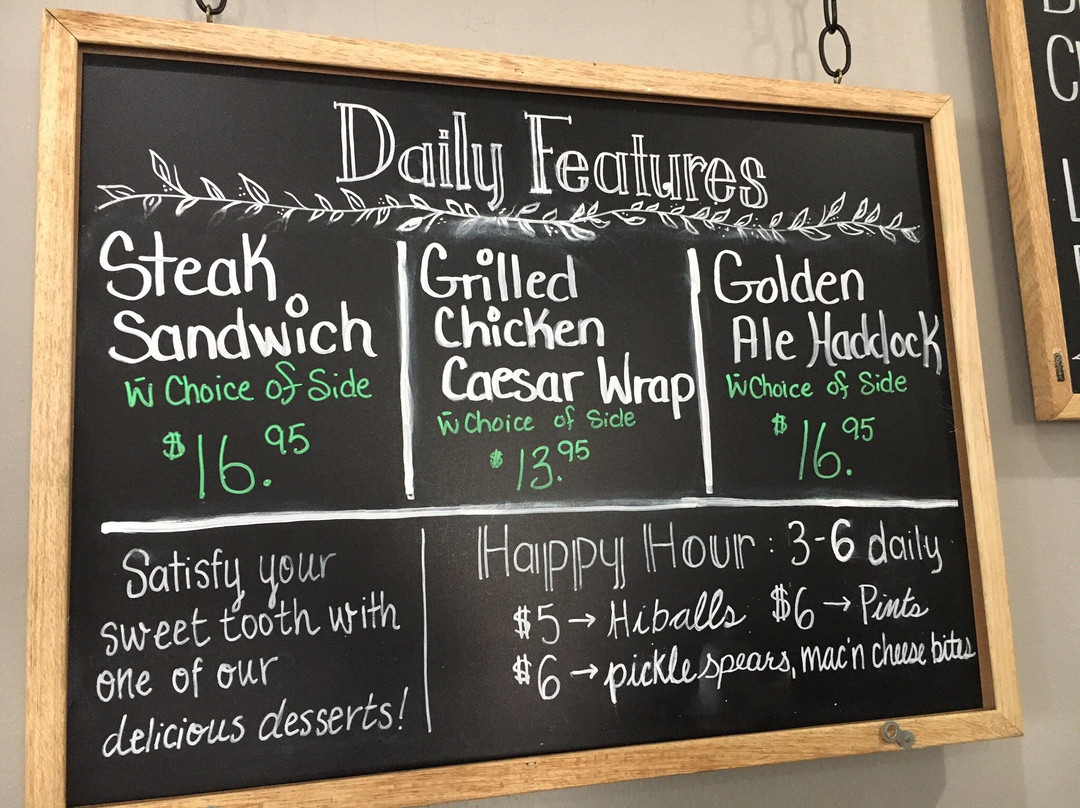 Daily Features
Steak
Sandwich
w Choice of Side
$16.95
Grilled
Chicken
Caesar Wrap
w Choice of Side
$13.95
Golden
Ale Haddock
w Choice of Side
$16.95
Satisfy your
sweet tooth with
one of our
delicious desserts!
Happy Hour: 3-6 daily
$5 → Hiballs $6 → Pints
$6 → pickle spears, mac'n cheese bites